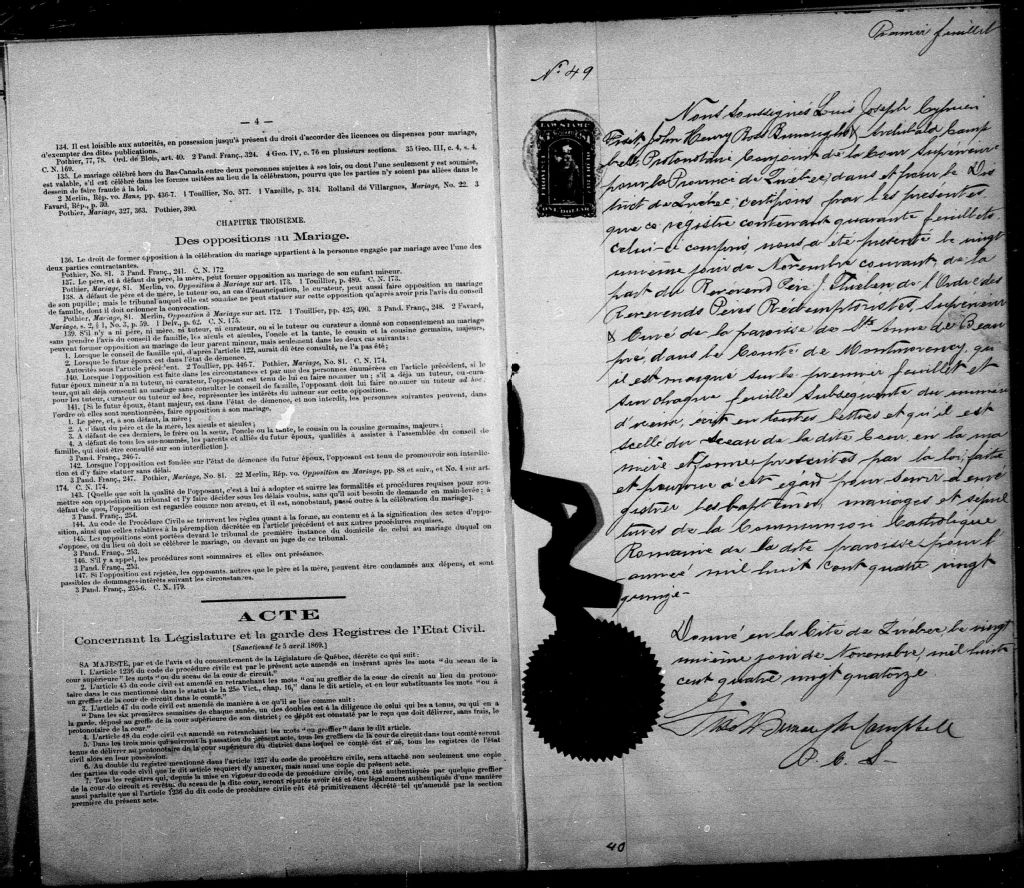 — 4 —
134. Il est loisible aux autorités, en possession jusqu'à présent du droit d'accorder des licences ou dispenses pour mariage,
d'exempter des dites publications.
Pothier, 77, 78. Ord. de Blois, art. 40. 2 Pand. Franç., 324. 4 Geo. IV, c. 76 en plusieurs sections. 35 Geo. III, c. 4, s. 4.
C. N. 169.
135. Le mariage célébré hors du Bas-Canada entre deux personnes sujettes à ses lois, ou dont l'une seulement y est soumise,
est valable, s'il est célébré dans les formes usitées au lieu de la célébration, pourvu que les parties n'y soient pas allées dans le
dessein de faire fraude à la loi.
2 Merlin, Rép. vo. Bans, pp. 436-7. 1 Touillier, No. 577. 1 Vazeille, p. 314. Rolland de Villargues, Mariage, No. 22. 3
Favard, Rép., p. 30.
Pothier, Mariage, 327, 363. Pothier, 390.
CHAPITRE TROISIÈME.
Des oppositions au Mariage.
136. Le droit de former opposition à la célébration du mariage appartient à la personne engagée par mariage avec l'une des
deux parties contractantes.
Pothier, No. 81. 3 Pand. Franç., 241. C. N. 172.
137. Le père, et à défaut du père, la mère, peut former opposition au mariage de son enfant mineur.
Pothier, Mariage, 81. Merlin, vo. Opposition à Mariage sur art. 173. 1 Touillier, p. 489. C. N. 173.
138. A défaut de père et de mère, le tuteur ou, au cas d'émancipation, le curateur, peut aussi faire opposition au mariage
de son pupille; mais le tribunal auquel elle est soumise ne peut statuer sur cette opposition qu'après avoir pris l'avis du conseil
de famille, dont il doit ordonner la convocation.
Pothier, Mariage, 81. Merlin, Opposition à Mariage sur art. 172. 1 Touillier, pp. 425, 490. 3 Pand. Franç., 248. 2 Favard,
Mariage, s. 2, § 1, No. 3, p. 59. 1 Delv., p. 62. C. N. 175.
139. S'il n'y a ni père, ni mère, ni tuteur, ni curateur, ou si le tuteur ou curateur a donné son consentement au mariage
sans prendre l'avis du conseil de famille, les aïeuls et aïeules, l'oncle et la tante, le cousin et la cousine germains, majeurs,
peuvent former opposition au mariage de leur parent mineur, mais seulement dans les deux cas suivants:
1. Lorsque le conseil de famille qui, d'après l'article 122, aurait dû être consulté, ne l'a pas été;
2. Lorsque le futur époux est dans l'état de démence.
Autorités sous l'article précédent. 2 Touillier, pp. 446-7. Pothier, Mariage, No. 81. C. N. 174.
140. Lorsque l'opposition est faite dans les circonstances et par une des personnes énumérées en l'article précédent, si le
futur époux mineur n'a ni tuteur, ni curateur, l'opposant est tenu de lui en faire nommer un; s'il a déjà un tuteur, ou curateur,
qui ait déjà consenti au mariage sans consulter le conseil de famille, l'opposant doit lui faire nommer un tuteur ad hoc,
pour les tuteur, curateur ou tuteur ad hoc, représenter les intérêts du mineur sur cette opposition.
141. [Si le futur époux, étant majeur, est dans l'état de démence, et non interdit, les personnes suivantes peuvent, dans
l'ordre où elles sont mentionnées, faire opposition à son mariage.
1. Le père, et, à son défaut, la mère;
2. A défaut du père et de la mère, les aïeuls et aïeules;
3. A défaut de ces derniers, le frère ou la sœur, l'oncle ou la tante, le cousin ou la cousine germains, majeurs;
4. A défaut de tous les sus-nommés, les parents et alliés du futur époux, qualifiés à assister à l'assemblée du conseil de
famille, qui doit être consulté sur son interdiction].
3 Pand. Franç., 246-7.
142. Lorsque l'opposition est fondée sur l'état de démence du futur époux, l'opposant est tenu de promouvoir son interdiction
et d'y faire statuer sans délai.
3 Pand. Franç., 247. Pothier, Mariage, No. 81. 22 Merlin, Rép. vo. Opposition au Mariage, pp. 88 et suiv., et No. 4 sur art.
174. C. N. 174.
143. [Quelle que soit la qualité de l'opposant, c'est à lui à adopter et suivre les formalités et procédures requises pour soumettre
son opposition au tribunal et l'y faire décider sous les délais voulus, sans qu'il soit besoin de demande en main-levée; à
défaut de quoi, l'opposition est regardée comme non avenu, et il est, nonobstant, passé outre à la célébration du mariage].
3 Pand. Franç., 254.
144. Au code de Procédure Civile se trouvent les règles quant à la forme, au contenu et à la signification des actes d'opposition,
ainsi que celles relatives à la péremption décrétée en l'article précédent et aux autres procédures requises.
145. Les oppositions sont portées devant le tribunal de première instance du domicile de celui au mariage duquel on
s'oppose, ou du lieu où doit se célébrer le mariage, ou devant un juge de ce tribunal.
3 Pand. Franç., 253.
146. S'il y a appel, les procédures sont sommaires et elles ont préséance.
3 Pand. Franç., 253.
147. Si l'opposition est rejetée, les opposants, autres que le père et la mère, peuvent être condamnés aux dépens, et sont
passibles de dommages-intérêts suivant les circonstances.
3 Pand. Franç., 255-6. C. N. 179.
ACTE
Concernant la Législature et la garde des Registres de l'Etat Civil.
[Sanctionné le 5 avril 1869.]
SA MAJESTÉ, par et de l'avis et du consentement de la Législature de Québec, décrète ce qui suit:
1. L'article 1236 du code de procédure civile est par le présent acte amendé en insérant après les mots "du sceau de la
cour supérieure" les mots "ou du sceau de la cour de circuit."
2. L'article 45 du code civil est amendé en retranchant les mots "ou au greffier de la cour de circuit au lieu du protonotaire
dans le cas mentionné dans le statut de la 25e Vict., chap. 16," dans le dit article, et en leur substituant les mots "ou à
un greffier de la cour de circuit dans le comté."
3. L'article 47 du code civil est amendé de manière à ce qu'il se lise comme suit:
"Dans les six premières semaines de chaque année, un des doubles est à la diligence de celui qui les a tenus, ou qui en a
la garde, déposé au greffe de la cour supérieure de son district; ce dépôt est constaté par le reçu que doit délivrer, sans frais, le
protonotaire de la cour."
4. L'article 48 du code civil est amendé en retranchant les mots "ou greffier" dans le dit article.
5. Dans les trois mois qui suivront la passation du présent acte, tous les greffiers de la cour de circuit dans tout comté seront
tenus de délivrer au protonotaire de la cour supérieure du district dans lequel ce comté est situé, tous les registres de l'état
civil alors en leur possession.
6. Au double du registre mentionné dans l'article 1237 du code de procédure civile, sera attaché non seulement une copie
des parties du code civil que le dit article requiert d'y annexer, mais aussi une copie du présent acte.
7. Tous les registres qui, depuis la mise en vigueur du code de procédure civile, ont été authentiqués par quelque greffier
de la cour de circuit et revêtu du sceau de la dite cour, seront réputés avoir été et être légalement authentiqués d'une manière
aussi parfaite que si l'article 1236 du dit code de procédure civile eût été primitivement décrété tel qu'amendé par la section
première du présent acte.
Premier feuillet
No. 49
LAW STAMP
ONE DOLLAR
Nous soussignés Louis Joseph Cyprien
Fiset, John Henry Ross Burroughs & Archibald Camp
bell, Protonotaire Conjoint de la Cour Supérieure
pour la Province de Québec, dans et pour le Dis
trict de Québec; certifions par les présentes
que ce registre contenant quarante feuillets
celui-ci compris, nous a été présenté le vingt
unième jour de Novembre courant de la
part du Révérend Père J. Thieban de l'Ordre des
Révérends Pères Rédemptoristes, Supérieur
& Curé de la paroisse de Ste Anne de Beau
pré, dans le Comté de Montmorency, qu'
il est marqué sur le premier feuillet et
sur chaque feuille subséquente du numéro
d'icelui, écrit en toutes lettres et qu'il est
scellé du Sceau de la dite Cour, en la ma
nière et forme prescrites par la loi, faite
et pourvue à cet égard pour servir à enré
gistrer les baptêmes, mariages et sépul
tures de la Communion Catholique
Romaine de la dite paroisse pour l'
année mil huit cent quatre vingt
quinze-
Donné en la Cité de Québec le vingt
unième jour de Novembre, mil huit
cent quatre vingt quatorze
Fiset Burroughs Campbell
P. C. S-
40